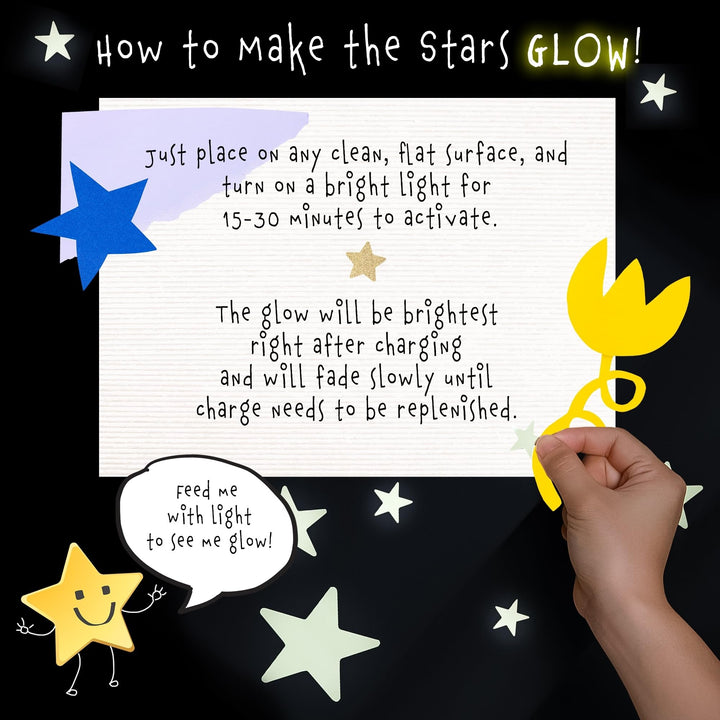 How to make the stars GLOW!
Just place on any clean, flat surface, and
turn on a bright light for
15-30 minutes to activate.
The glow will be brightest
right after charging
and will fade slowly until
charge needs to be replenished.
Feed me
with light
to see me glow!